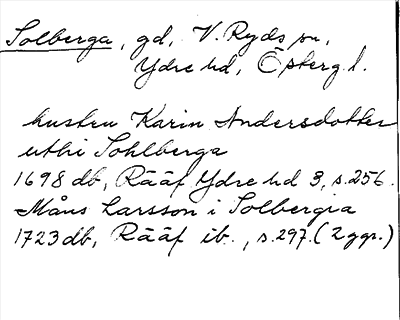 Solberga, gd, V. Ryds sn,
Ydre hd, Östergl.
hustru Karin Andersdotter
uthi Sohlberga
1698 db, Rääf Ydre hd 3, s. 256.
Måns Larsson i Solbergia
1723 db, Rääf ib., s. 297. (2 ggr.)